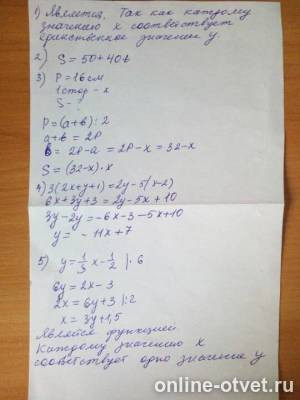 1) Является. Так как каждому
значению x соответствует
единственное значение y.
2) S = 50 + 40t
3) P = 16 см
1 стор - x
S - ?
P = (a+b) : 2
a+b = 2P
b = 2P-a = 2P-x = 32-x
S = (32-x)·x
4) 3(2x+y+1) = 2y-5(x-2)
6x+3y+3 = 2y-5x+10
3y-2y = -6x-3-5x+10
y = -11x+7
5) y = 1/3 x - 1/2 |·6
6y = 2x-3
2x = 6y+3 |:2
x = 3y+1,5
Является функцией
Каждому значению x
соответствует одно значение y
online-otvet.ru